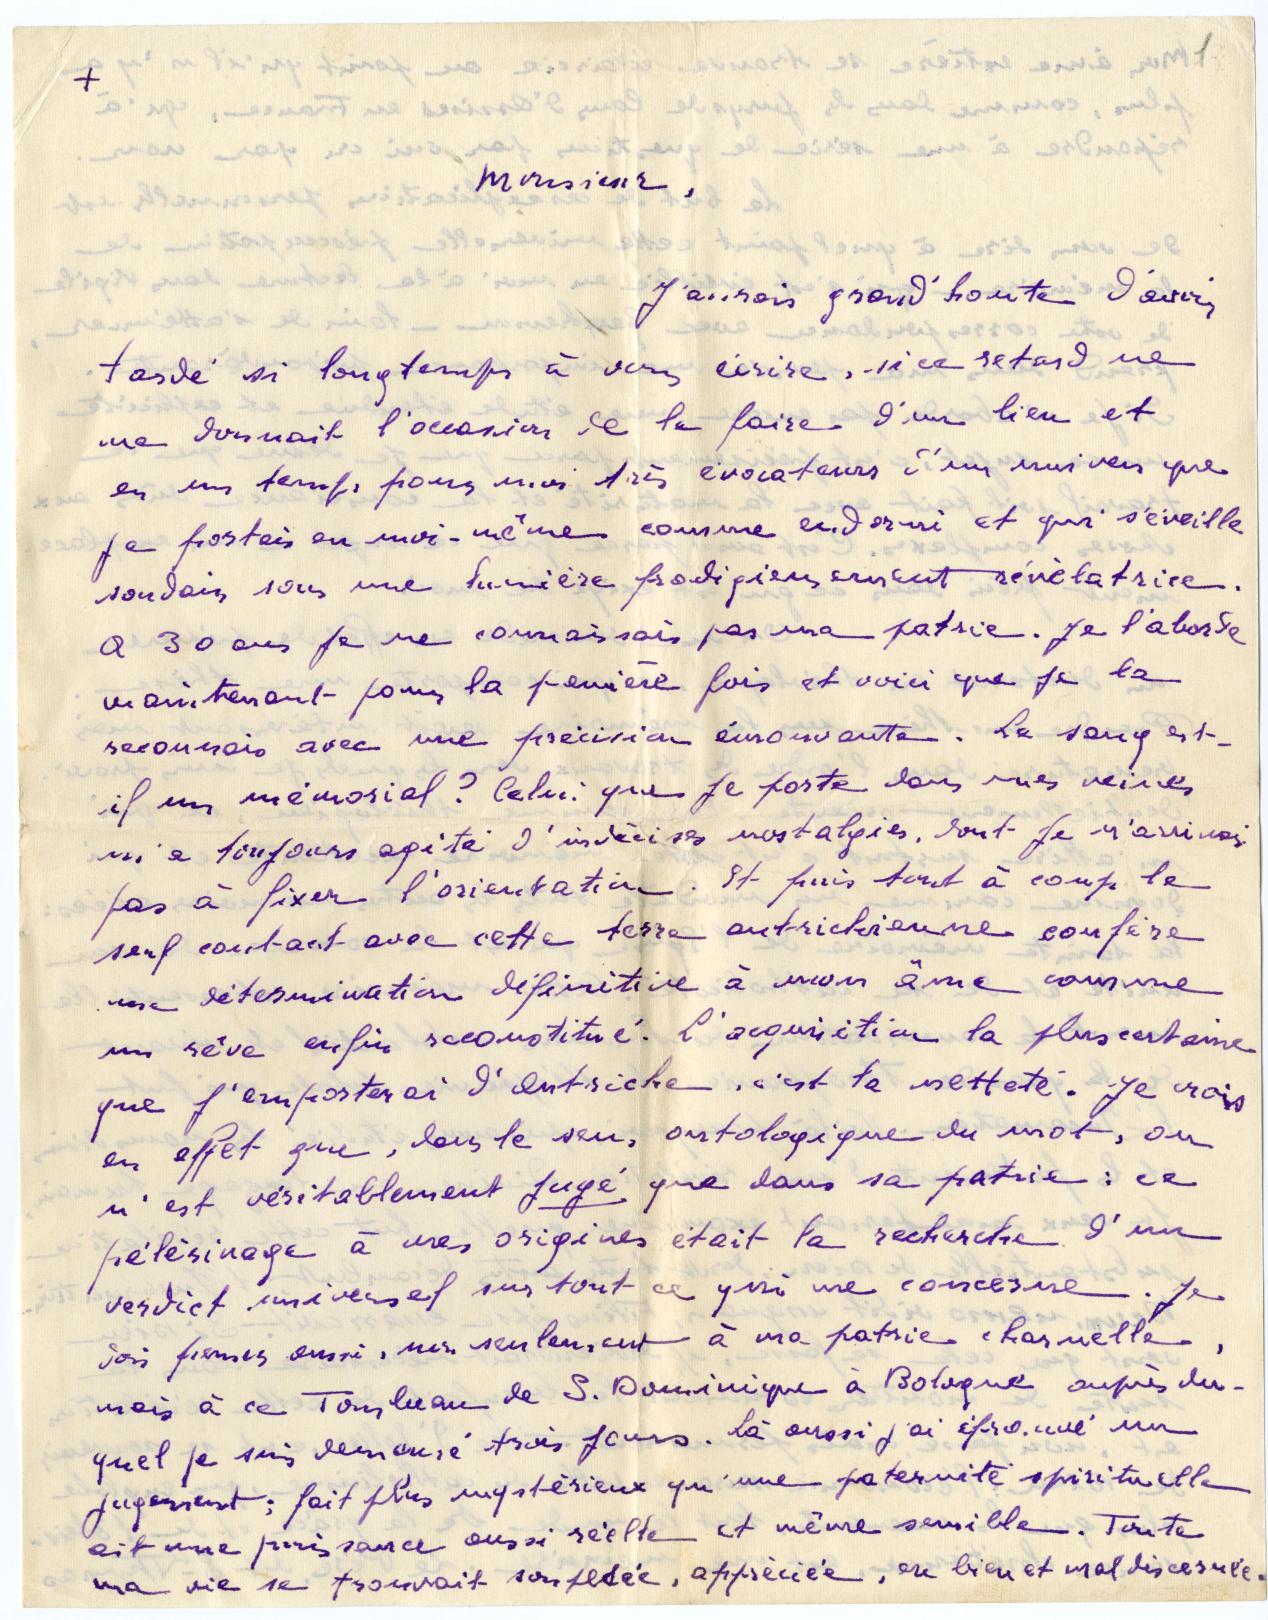 1
+
Monsieur,
J'aurais grand'honte d'avoir
tardé si longtemps à vous écrire, si ce retard ne
me donnait l'occasion de le faire d'un lieu et
en un temps pour moi très évocateurs d'un univers que
je portais en moi-même comme endormi et qui s'éveille
soudain sous une lumière prodigieusement révélatrice.
A 30 ans je ne connaissais pas ma patrie. Je l'aborde
maintenant pour la première fois et voici que je la
reconnais avec une précision émouvante. Le sang est-
il un mémorial ? Celui que je porte dans mes veines
m'a toujours agité d'indécises nostalgies, dont je n'arrivais
pas à fixer l'orientation. Et puis tout à coup le
seul contact avec cette terre autrichienne confère
une détermination définitive à mon âme comme
un rêve enfin reconstitué. L'acquisition la plus certaine
que j'emporterai d'Autriche, c'est la netteté. Je crois
en effet que, dans le sens ontologique du mot, on
n'est véritablement jugé que dans sa patrie : ce
pélérinage à mes origines était la recherche d'un
verdict universel sur tout ce qui me concerne. Je
dois penser aussi, non seulement à ma patrie charnelle,
mais à ce Tombeau de S. Dominique à Bologne auprès du-
quel je suis demeuré trois jours. Là aussi j'ai éprouvé un
jugement ; fait plus mystérieux qu'une paternité spirituelle
ait une puissance aussi réelle et même sensible. Toute
ma vie se trouvait soupesée, appréciée, en bien et mal discernée.